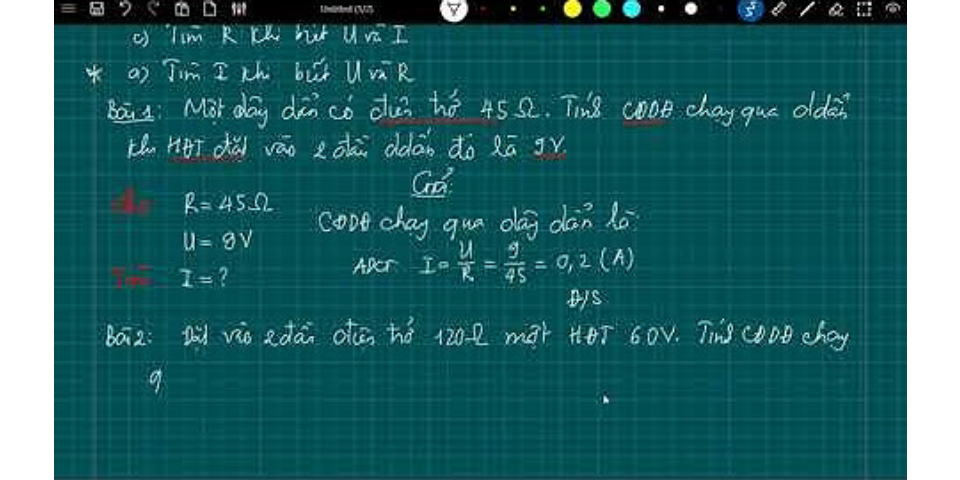 Untitled (1/2)
c) Tìm R khi biết U và I
* a) Tìm I khi biết U và R
Bài 1: Một dây dẫn có điện trở 45 Ω. Tính CĐDĐ chạy qua ddẫn
khi HĐT đặt vào 2 đầu ddẫn đó là 9V.
Giải:
Cho R = 45 Ω
CĐDĐ chạy qua dây dẫn là:
U = 9V
ADCT: I = U/R = 9/45 = 0,2 (A)
Tìm I = ?
Đ/S
Bài 2: Đặt vào 2 đầu điện trở 120 Ω một HĐT 60V. Tính CĐDĐ chạy
q